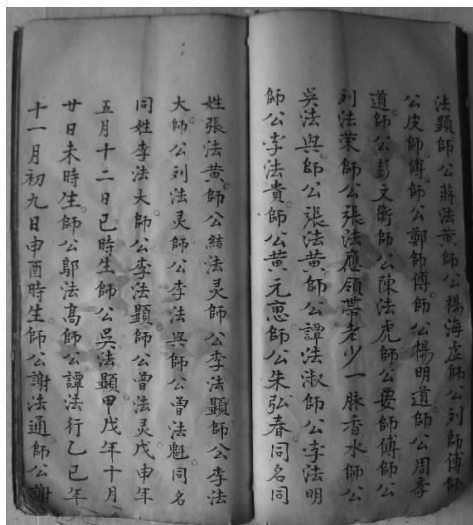 法顕師公蔣法黄師公楊海虚師公刘師傅師
公皮師傅師公鄭師傅師公楊明道師公周季
道師公彭文衛師公陳法虎師公晏師傅師公
刘法荣師公張法應領帯老少一脉香水師公
吳法與師公張法黄師公譚法淑師公李法明
師公李法貴師公黄元恵師公朱弘春同名同
姓張法黄師公結法灵師公李法顕師公李法
大師公刘法灵師公李法與師公曽法魁同名
同姓李法大師公李法顕師公曽法灵戊申年
五月十二日巳時生師公吳法顕甲戌年十月
廿日未時生師公鄔法高師公譚法行乙巳年
十一月初九日申酉時生師公謝法通師公謝